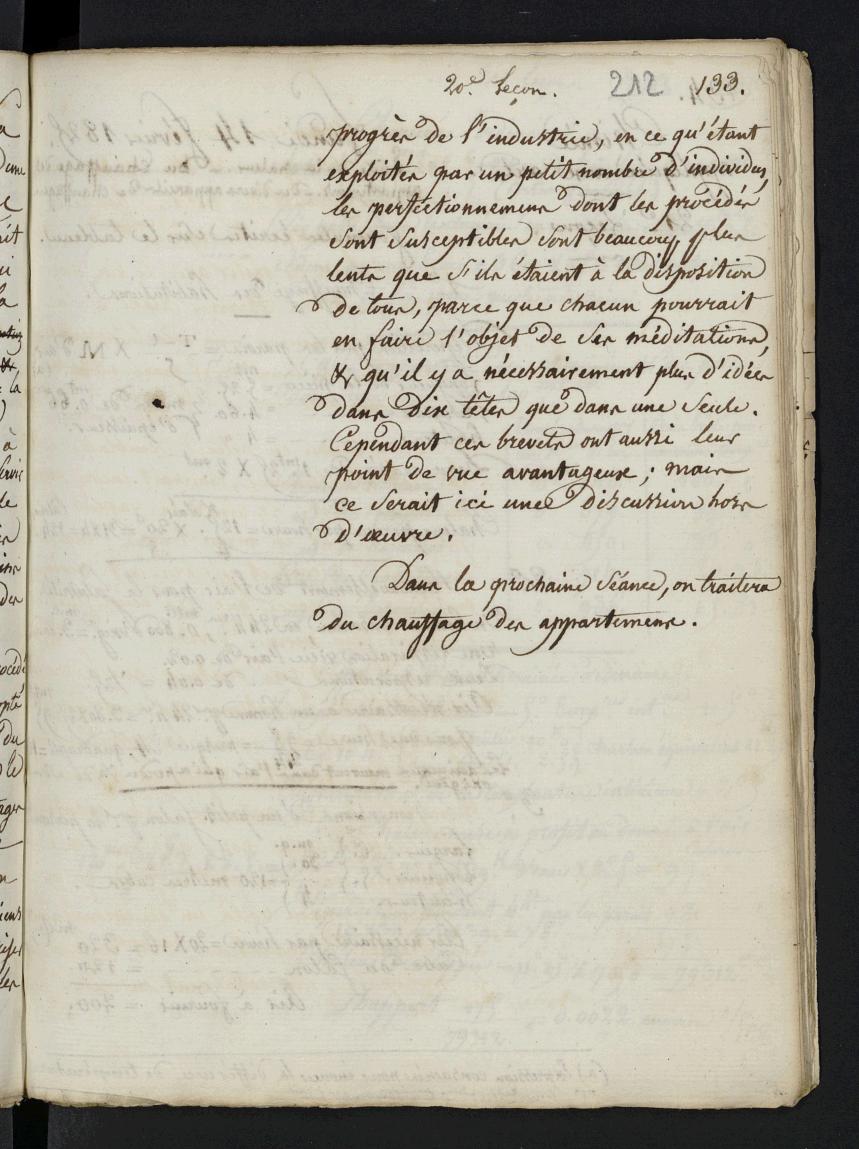 20.e Leçon. 212 133.
progrès de l'industrie, en ce qu'étant
exploités par un petit nombre d'individus,
les perfectionnemens dont les procédés
sont susceptibles sont beaucoup plus
lents que s'ils étaient à la disposition
de tous, parce que chacun pourrait
en faire l'objet de ses méditations,
& qu'il y a nécessairement plus d'idées
dans dix têtes que dans une seule.
Cependant ces brevets ont aussi leur
point de vue avantageux ; mais
ce serait ici une discussion hors
d'œuvre.
Dans la prochaine séance, on traitera
du chauffage des appartemens.